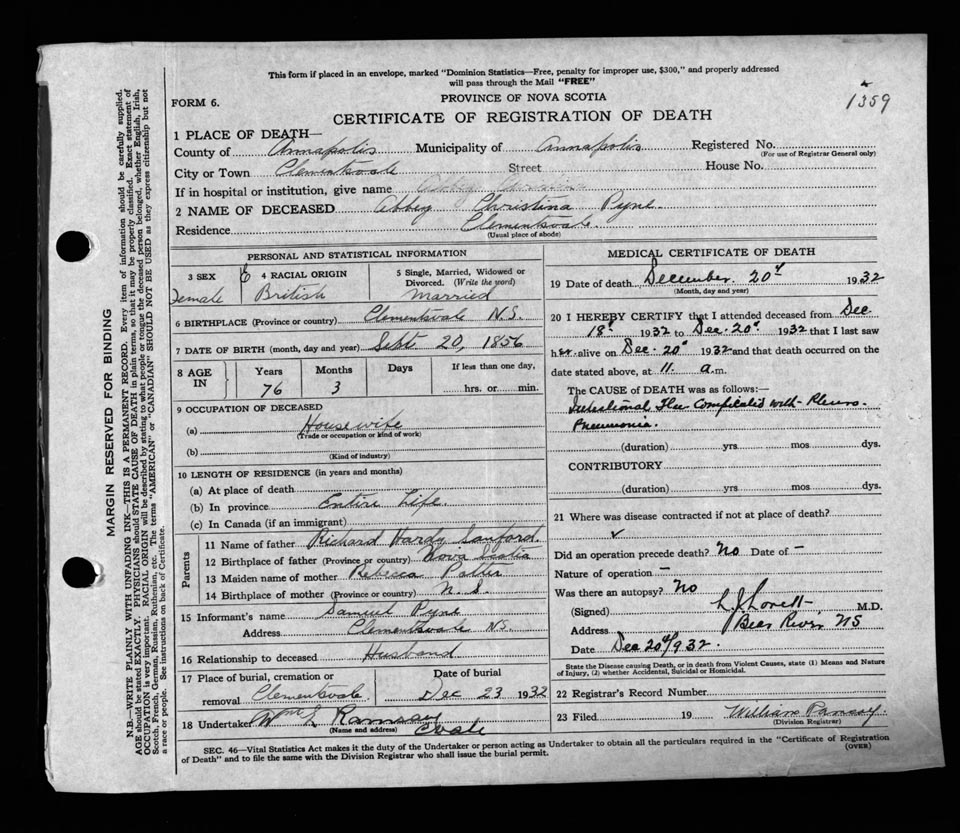 This form if placed in an envelope, marked "Dominion Statistics—Free, penalty for improper use, $300," and properly addressed
will pass through the Mail "FREE"
1359
FORM 6.
PROVINCE OF NOVA SCOTIA
CERTIFICATE OF REGISTRATION OF DEATH
1 PLACE OF DEATH—
County of Annapolis Municipality of Annapolis Registered No.
(For use of Registrar General only)
City or Town Clementsvale Street House No.
If in hospital or institution, give name Abbey Christina
2 NAME OF DECEASED Abbey Christina Pyne
Residence Clementsvale.
(Usual place of abode)
PERSONAL AND STATISTICAL INFORMATION
3 SEX 4 RACIAL ORIGIN 5 Single, Married, Widowed or
Divorced. (Write the word)
Female British Married
6 BIRTHPLACE (Province or country) Clementsvale N.S.
7 DATE OF BIRTH (month, day and year) Sept 20, 1856
8 AGE IN Years Months Days If less than one day,
76 3 hrs. or min.
9 OCCUPATION OF DECEASED
(a) Housewife
(Trade or occupation or kind of work)
(b)
(Kind of industry)
10 LENGTH OF RESIDENCE (in years and months)
(a) At place of death
(b) In province Entire Life
(c) In Canada (if an immigrant)
Parents
11 Name of father Richard Hardy Sanford.
12 Birthplace of father (Province or country) Nova Scotia
13 Maiden name of mother Rebecca Potter
14 Birthplace of mother (Province or country) N.S.
15 Informant's name Samuel Pyne
Address Clementsvale N.S.
16 Relationship to deceased Husband
17 Place of burial, cremation or Date of burial
removal Clementsvale. Dec 23 1932
18 Undertaker Wm L Ramsay
(Name and address) Cvale
MEDICAL CERTIFICATE OF DEATH
19 Date of death December 20th 1932
(Month, day and year)
20 I HEREBY CERTIFY that I attended deceased from Dec.
18th 1932 to Dec. 20th 1932 that I last saw
her alive on Dec. 20th 1932 and that death occurred on the
date stated above, at 11. a.m.
The CAUSE of DEATH was as follows:—
Intestinal Flu Complicated with Pleuro-
Pneumonia.
(duration) yrs mos dys.
CONTRIBUTORY
(duration) yrs mos dys.
21 Where was disease contracted if not at place of death?
✓
Did an operation precede death? No Date of —
Nature of operation —
Was there an autopsy? No
(Signed) L J Lovett M.D.
Address Bear River NS
Date Dec 20th/932.
State the Disease causing Death, or in death from Violent Causes, state (1) Means and Nature
of Injury, (2) whether Accidental, Suicidal or Homicidal.
22 Registrar's Record Number
23 Filed 19 William Ramsay.
(Division Registrar)
SEC. 46—Vital Statistics Act makes it the duty of the Undertaker or person acting as Undertaker to obtain all the particulars required in the "Certificate of Registration
of Death" and to file the same with the Division Registrar who shall issue the burial permit. (OVER)
MARGIN RESERVED FOR BINDING
N.B.—WRITE PLAINLY WITH UNFADING INK—THIS IS A PERMANENT RECORD. Every item of information should be carefully supplied.
AGE should be stated EXACTLY. PHYSICIANS should STATE CAUSE OF DEATH in plain terms, so that it may be properly classified. Exact statement of
OCCUPATION is very important. RACIAL ORIGIN will be described by stating to what people or tongue the deceased person belonged, whether English, Irish,
Scotch, French, German, Russian, Ruthenian, etc. The terms "AMERICAN" or "CANADIAN" SHOULD NOT BE USED as they express citizenship but not
a race or people. See instructions on back of Certificate.